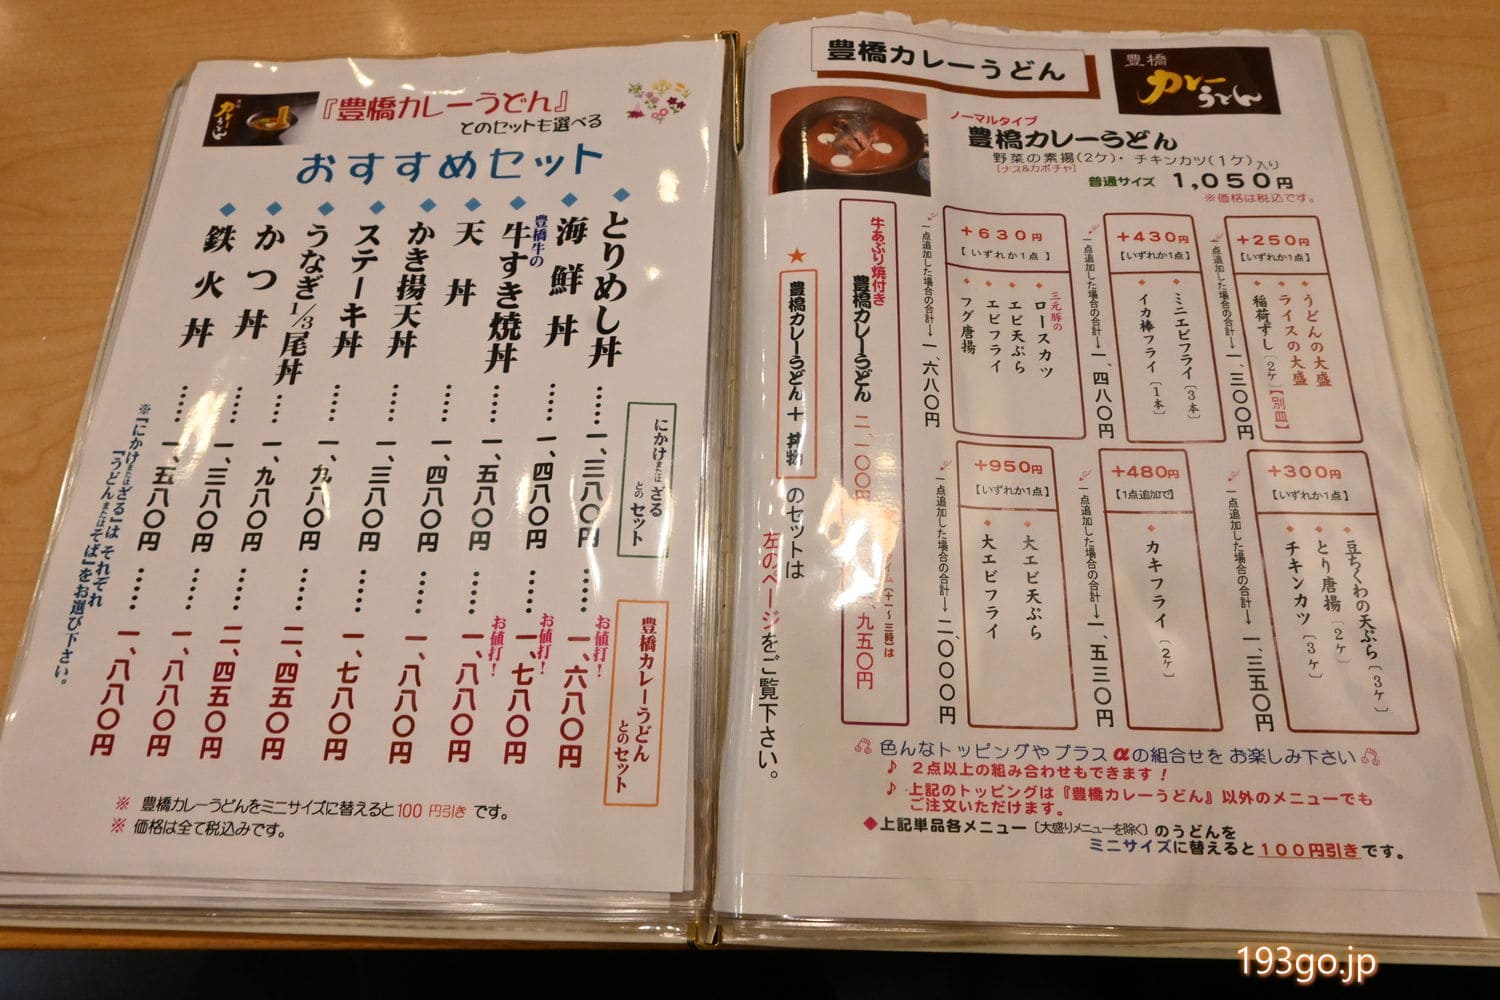 『豊橋カレーうどん』
とのセットも選べる
おすすめセット
にかけまたはざるとのセット
豊橋カレーうどんとのセット
とりめし丼……一、三八〇円……お値打!一、六八〇円
海鮮丼……一、四八〇円……お値打!一、七八〇円
豊橋牛の牛すき焼丼……一、五八〇円……お値打!一、八八〇円
天丼……一、四八〇円……一、八八〇円
かき揚天丼……一、三八〇円……一、七八〇円
ステーキ丼……一、九八〇円……二、四五〇円
うなぎ1/3尾丼……一、九八〇円……二、四五〇円
かつ丼……一、三八〇円……一、八八〇円
鉄火丼……一、五八〇円……一、八八〇円
※『にかけまたはざる』は それぞれ
『うどんまたはそば』をお選び下さい。
※ 豊橋カレーうどんをミニサイズに替えると100円引きです。
※ 価格は全て税込みです。
豊橋カレーうどん
豊橋カレーうどん
ノーマルタイプ
豊橋カレーうどん
野菜の素揚(2ケ)・チキンカツ(1ケ)入り
[ナス&カボチャ]
普通サイズ 1,050円
※価格は税込です。
+250円
【いずれか1点】
うどんの大盛
ライスの大盛
稲荷ずし〔2ケ〕【別皿】
一点追加した場合の合計→一、三〇〇円
+430円
【いずれか1点】
ミニエビフライ〔3本〕
イカ棒フライ〔1本〕
一点追加した場合の合計→一、四八〇円
+630円
【いずれか1点】
三元豚のロースカツ
エビ天ぷら
エビフライ
フグ唐揚
一点追加した場合の合計→一、六八〇円
+300円
【いずれか1点】
豆ちくわの天ぷら〔3ケ〕
とり唐揚〔2ケ〕
チキンカツ〔3ケ〕
一点追加した場合の合計→一、三五〇円
+480円
【1点追加で】
カキフライ〔2ケ〕
一点追加した場合の合計→一、五三〇円
+950円
【いずれか1点】
大エビ天ぷら
大エビフライ
一点追加した場合の合計→二、〇〇〇円
牛あぶり焼付き 豊橋カレーうどん 二、一〇〇円
イム(十一〜三時)は
九五〇円
★豊橋カレーうどん + 丼物のセットは
左のページをご覧下さい。
色んなトッピングや プラスαの組合せを お楽しみ下さい
♪ 2点以上の組み合わせもできます!
♪ 上記のトッピングは『豊橋カレーうどん』以外のメニューでも
ご注文いただけます。
◆上記単品各メニュー〔大盛りメニューを除く〕のうどんを
ミニサイズに替えると100円引きです。
193go.jp